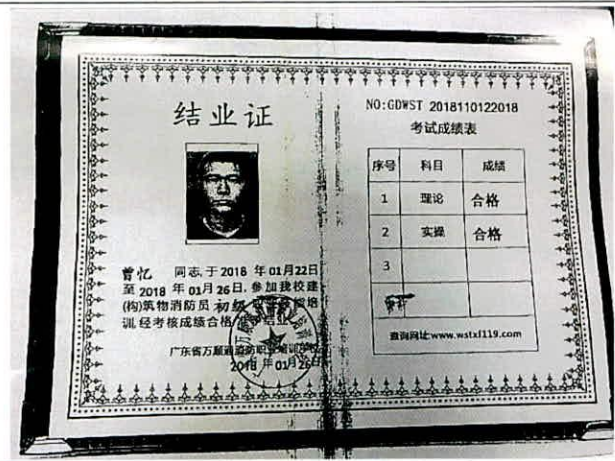 结业证
曾忆 同志,于 2018 年 01月22日
至 2018 年 01月 26日, 参加我校建
(构)筑物消防员 初级
训,经考核成绩合格
广东省万顺通消防职业培训学校
2018 年 01月26日
NO:GDWST 2018110122018
考试成绩表
序号 科目 成绩
1 理论 合格
2 实操 合格
3
查询网址:www.wstxf119.com